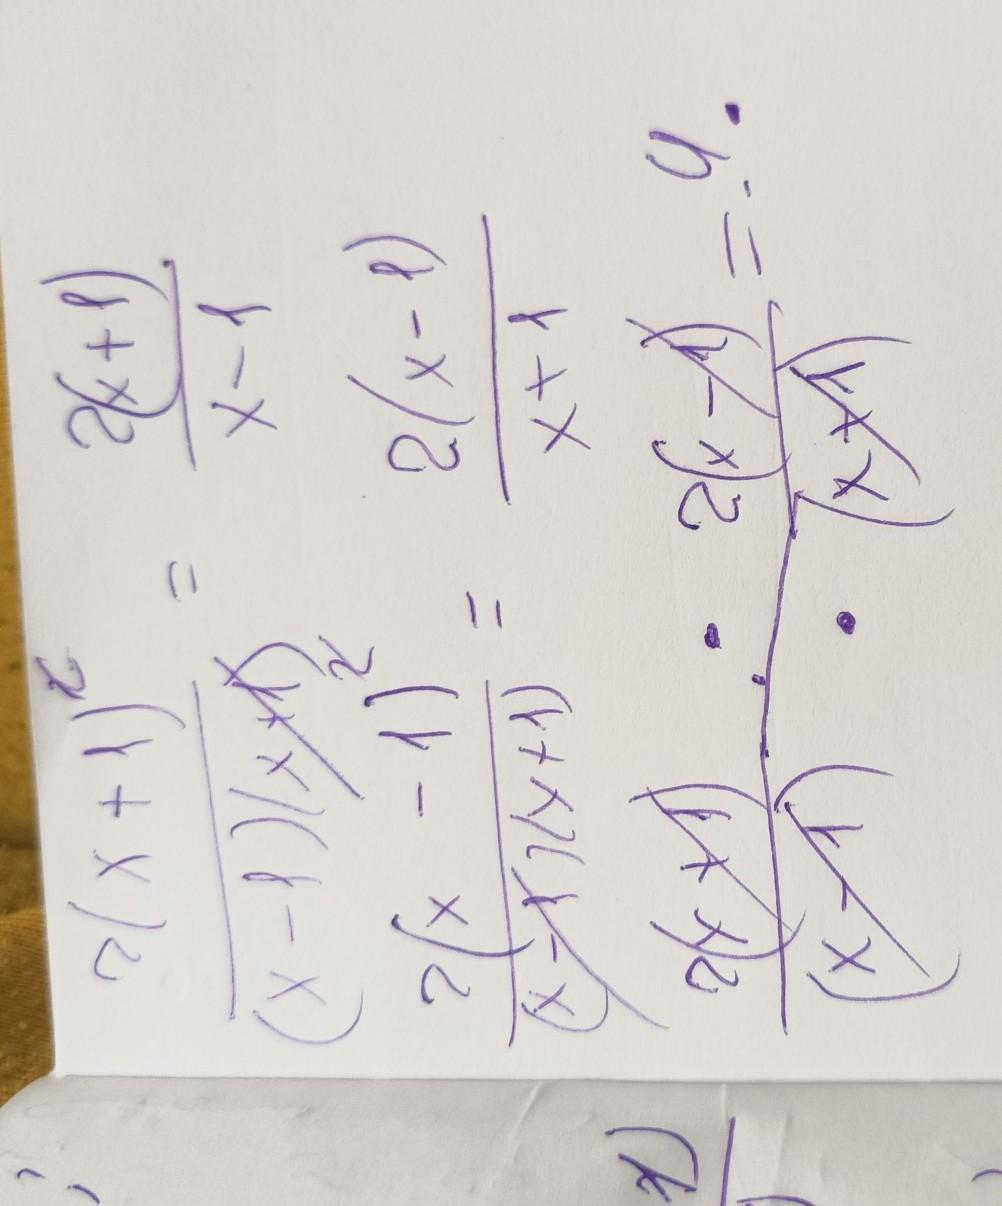 2(x+1)² = 2(x+1)
(x-1)(x+1) x-1
2(x-1)² = 2(x-1)
(x-1)(x+1) x+1
2(x+1) · 2(x-1) = 4.
(x-1) · (x+1)